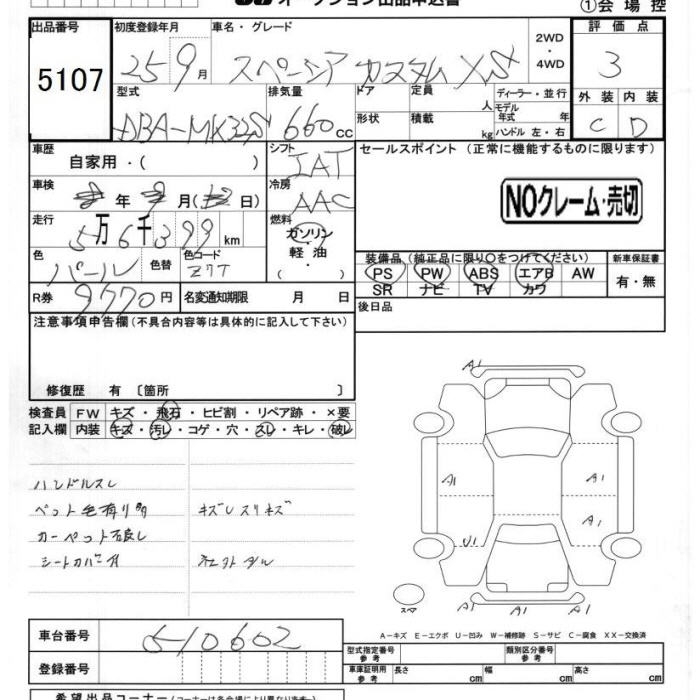 オークション出品申込書 ①会場控
出品番号 初度登録年月 車名・グレード 2WD・4WD 評価点
5107 25 9月 スペーシア カスタム XS 3
型式 排気量 ドア 定員 人 ディーラー・並行 外装 内装
DBA-MK32S 660cc 形状 積載 kg モデル年式 年 ハンドル 左・右 C D
車歴 シフト セールスポイント (正常に機能するものに限ります)
自家用・( ) IAT
車検 年 9月( 日) 冷房 AAC NOクレーム・売切
走行 5万6千399km 燃料 ガソリン・軽油・
色 パール 色替 色コード Z7T 装備品(純正品に限り○をつけてください) 新車保証書
PS PW ABS エアB AW 有・無
SR ナビ TV カワ
R券 9770円 名変通知期限 月 日 後日品
注意事項申告欄(不具合内容等は具体的に記入して下さい)
修復歴 有 〔箇所 〕
検査員 FW キズ・飛石・ヒビ割・リペア跡・×要
記入欄 内装 キズ・汚レ・コゲ・穴・スレ・キレ・破レ
ハンドルスレ
ペット毛有り
キズレスリキズ
カーペット
シートカバー付
A1
A1 A1
A1
U1
スペア A1 A1
A-キズ E-エクボ U-凹み W-補修跡 S-サビ C-腐食 XX-交換済
車台番号 610602
登録番号
型式指定番号 参考 類別区分番号 参考
車庫証明用 参考 長さ cm 幅 cm 高さ cm
希望出品コーナー(コーナーは各会場により異なります)